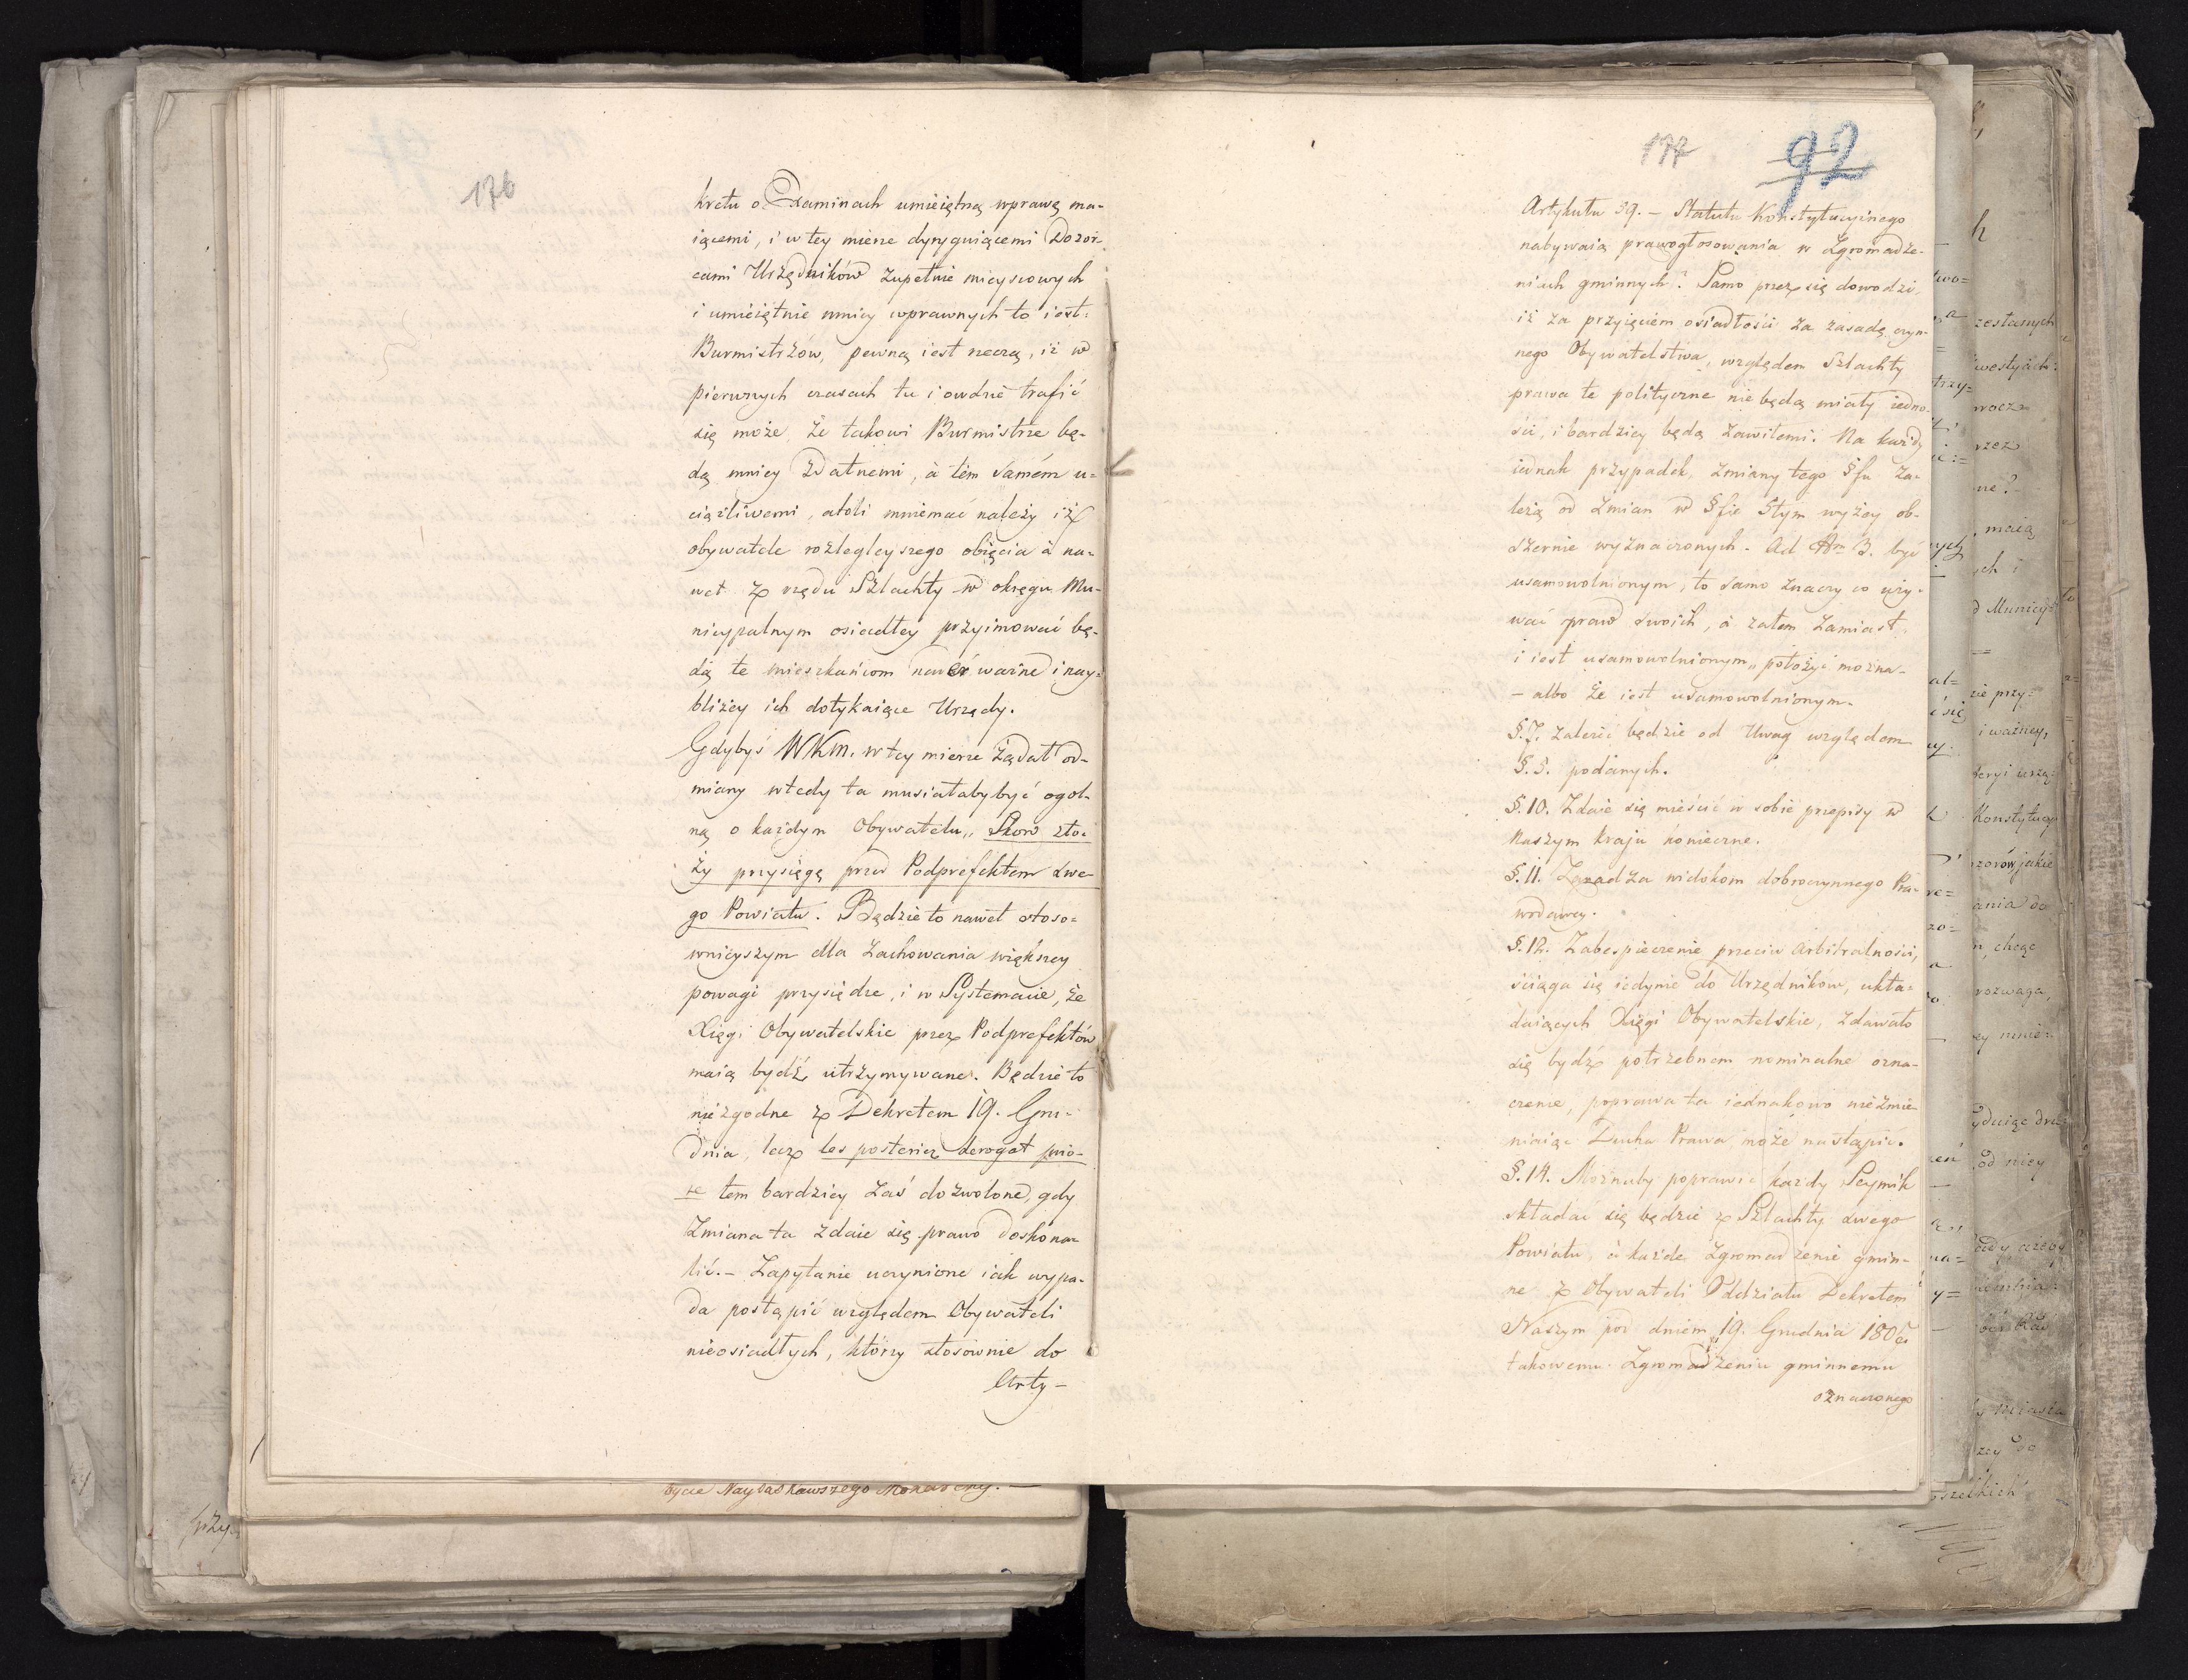 176
kretu o Examinach umieiętną wprawę ma-
iącemi, i w tey mierze dyryguiącemi Dozor-
cami Urzędników zupełnie mieyscowych
i umieiętnie mniey wprawnych to iest:
Burmistrzów, pewną iest rzeczą, iż w
pierwszych czasach tu i owdzie trafić
się może, że takowi Burmistrze bę-
dą mniey zdatnemi, à tém samém u-
ciążliwemi, atóli mniemać należy iż
obywatele rozlegleyszego obięcia à na-
wet z rzędu Szlachty w okręgu Mu-
nicypalnym osiadłey przyimować bę-
dą te mieszkańcom nader ważne i nay-
bliżey ich dotykaiące Urzędy.
Gdybyś WKM. w tey mierze żądał od-
miany wtedy ta musiałaby być ogol-
ną o każdym Obywatelu „ Skoro zło-
ży przysięgę przed Podprefektem swe-
go Powiatu. Będzie to nawet stoso-
wnieyszym dla zachowania większey
powagi przysiędze, i w Systemacie, że
Xięgi Obywatelskie przez Podprefektów
maią bydź utrzymywane. Będzie to
niezgodne z Dekretem 19. Gru-
dnia, lecz les posterior derogat prio-
re tem bardziey zaś dozwolone, gdy
Zmiana ta zdaie się prawo doskona-
lić. – Zapytanie uczynione iak wypa-
da postąpić względem Obywateli
nieosiadłych, którzy stosownie do
Arty-
177
92
Artykułu 59. – Statutu Konstytucyinego
nabywaią prawo głosowania w Zgromadze-
niach gminnych? Samo przez się dowodzi,
iż za przyięciem osiadłości za zasadę czyn-
nego Obywatelstwa, względem Szlachty
prawa te polityczne nie będą miały iedno-
ści, i bardziey będą zawiłemi. Na każdy
iednak przypadek, zmiany tego §fu za-
leżą od zmian w §fie 5tym wyżey ob-
szernie wyznaczonych. Ad 3. być
usamowolnionym, to samo znaczy co uży-
wać praw swoich, à zatem zamiast
i iest usamowolnionym „ położyć można –
– albo że iest usamowolnionym.
§. 7. zależeć będzie od Uwag względem
§. 5. podanych.
§. 10. Zdaie się mieścić w sobie przepisy w
Naszym kraju konieczne.
§. 11. Zaradza widokom dobroczynnego Pra-
wodawcy.
§. 12. Zabespieczenie przeciw Arbitralności,
ściąga się iedynie do Urzędników, ukła-
daiących Xięgi Obywatelskie, zdawało
się bydź potrzebnem nominalne ozna-
czenie, poprawa ta iednakowo niezmie-
niaiąc Ducha Prawa może nastąpić.
§. 14. Możnaby poprawić każdy Seymik
składać się będzie z Szlachty swego
Powiatu, à każde Zgromadzenie gmin-
ne z Obywateli Oddziału Dekretem
Naszym pod dniem 19. Grudnia
takowemu Zgromadzeniu gminnemu
oznaczonego